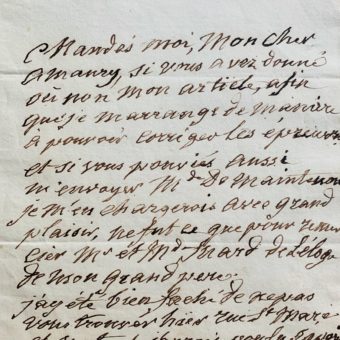 Mandés moi, Mon cher
Amaury, si vous avez donné
ou non mon article, afin
que je m'arrange de Maniere
à pouvoir corriger les épreuves
et si vous pouviés aussi
m'envoyer Md. De Maintenon
je m'en chargerois avec grand
plaisir, ne fut ce que pour remer
cier Mr et Md. Suard de l'eloge
de mon grand pere.
j'ay été bien faché de ne pas
vous trouver hier rue St